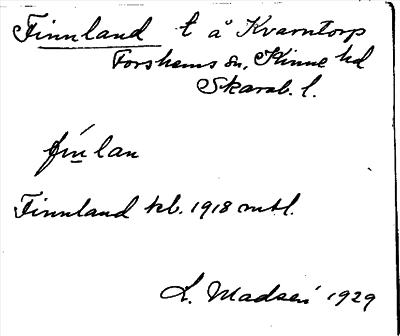 Finnland t å Kvarntorp
Forshems sn, Kinne hd
Skarab. l.
fìnlan
Finnland kb. 1918 mtl.
L. Madsén 1929